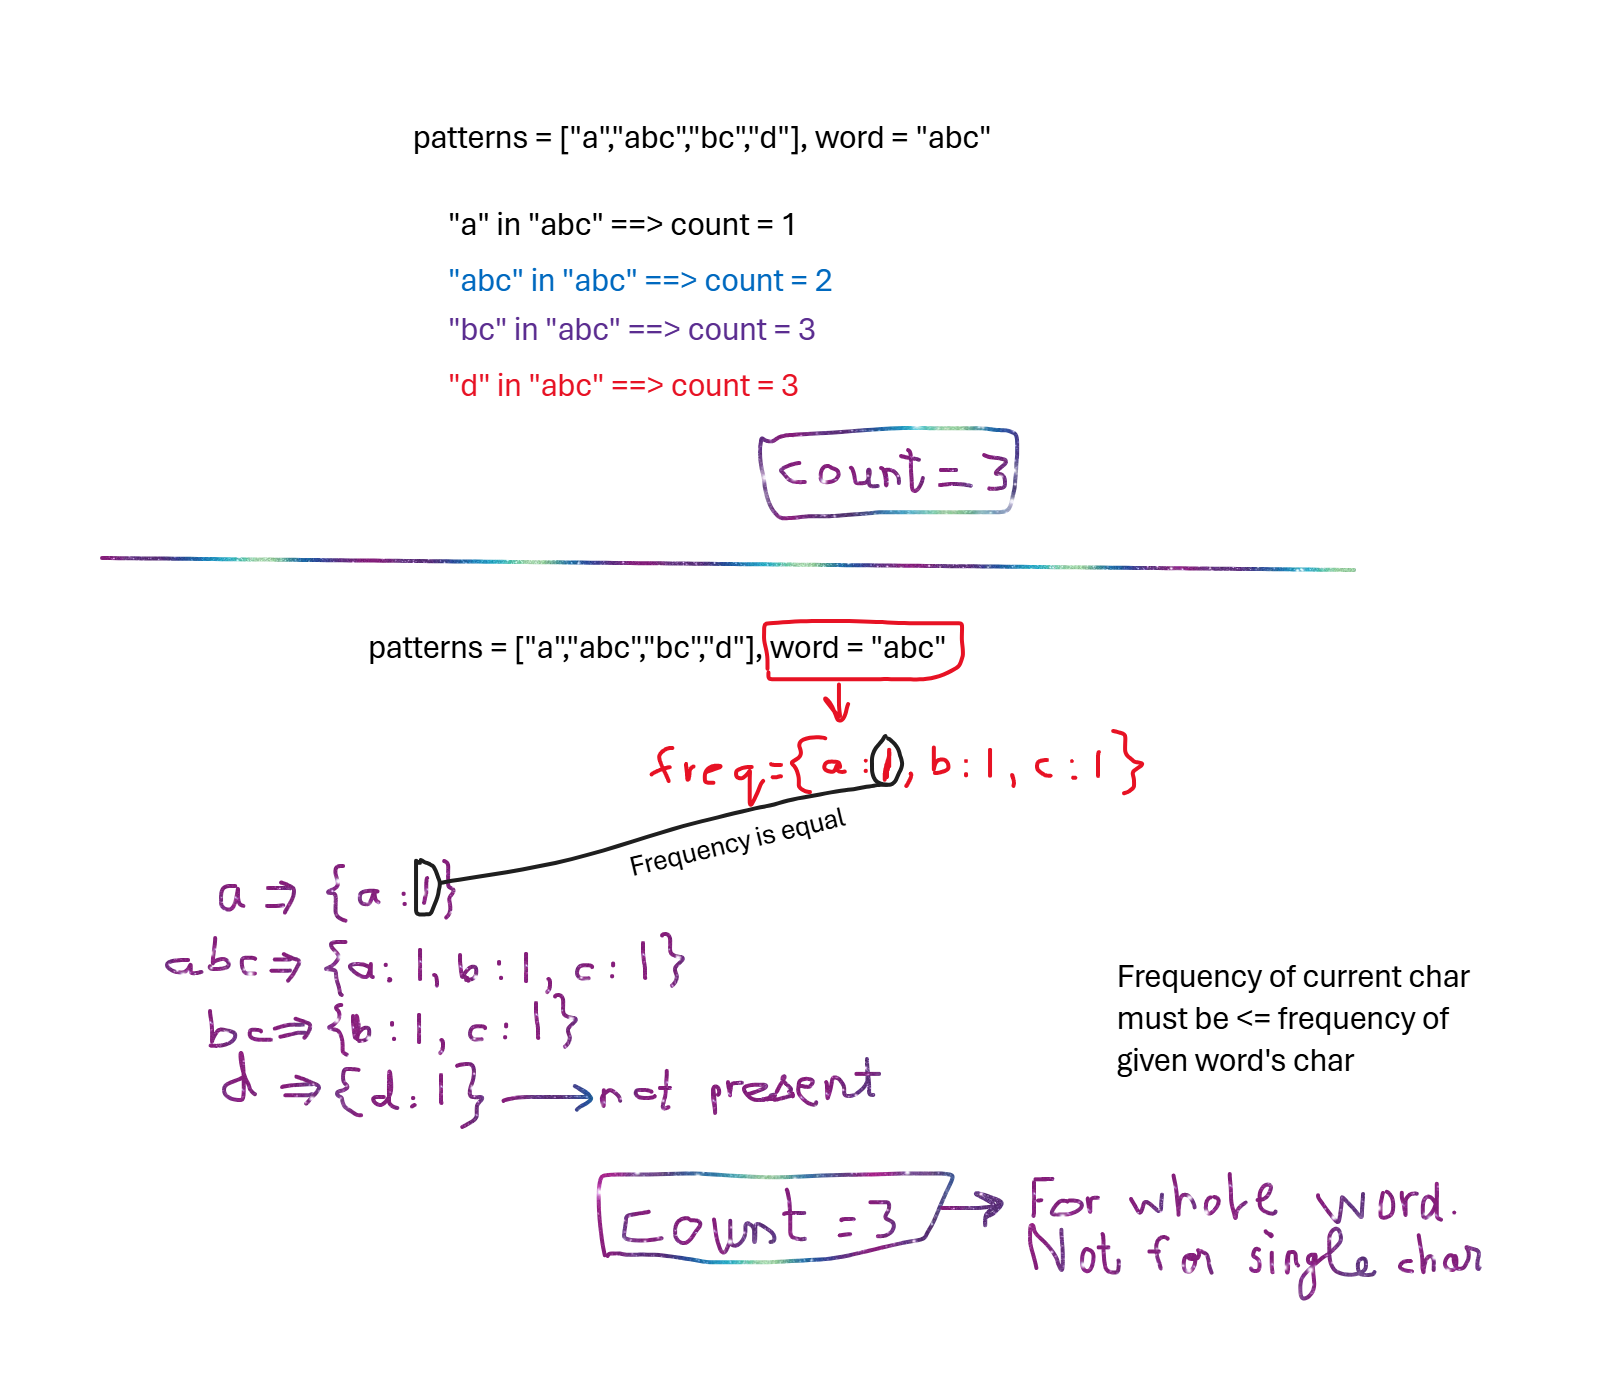 patterns = ["a","abc","bc","d"], word = "abc"
"a" in "abc" ==> count = 1
"abc" in "abc" ==> count = 2
"bc" in "abc" ==> count = 3
"d" in "abc" ==> count = 3
count = 3
patterns = ["a","abc","bc","d"], word = "abc"
freq={a:1, b:1, c:1}
Frequency is equal
a ⇒ {a:1}
abc ⇒ {a:1, b:1, c:1}
bc ⇒ {b:1, c:1}
d ⇒ {d:1} → not present
Frequency of current char
must be <= frequency of
given word's char
count = 3 → For whole word.
Not for single char